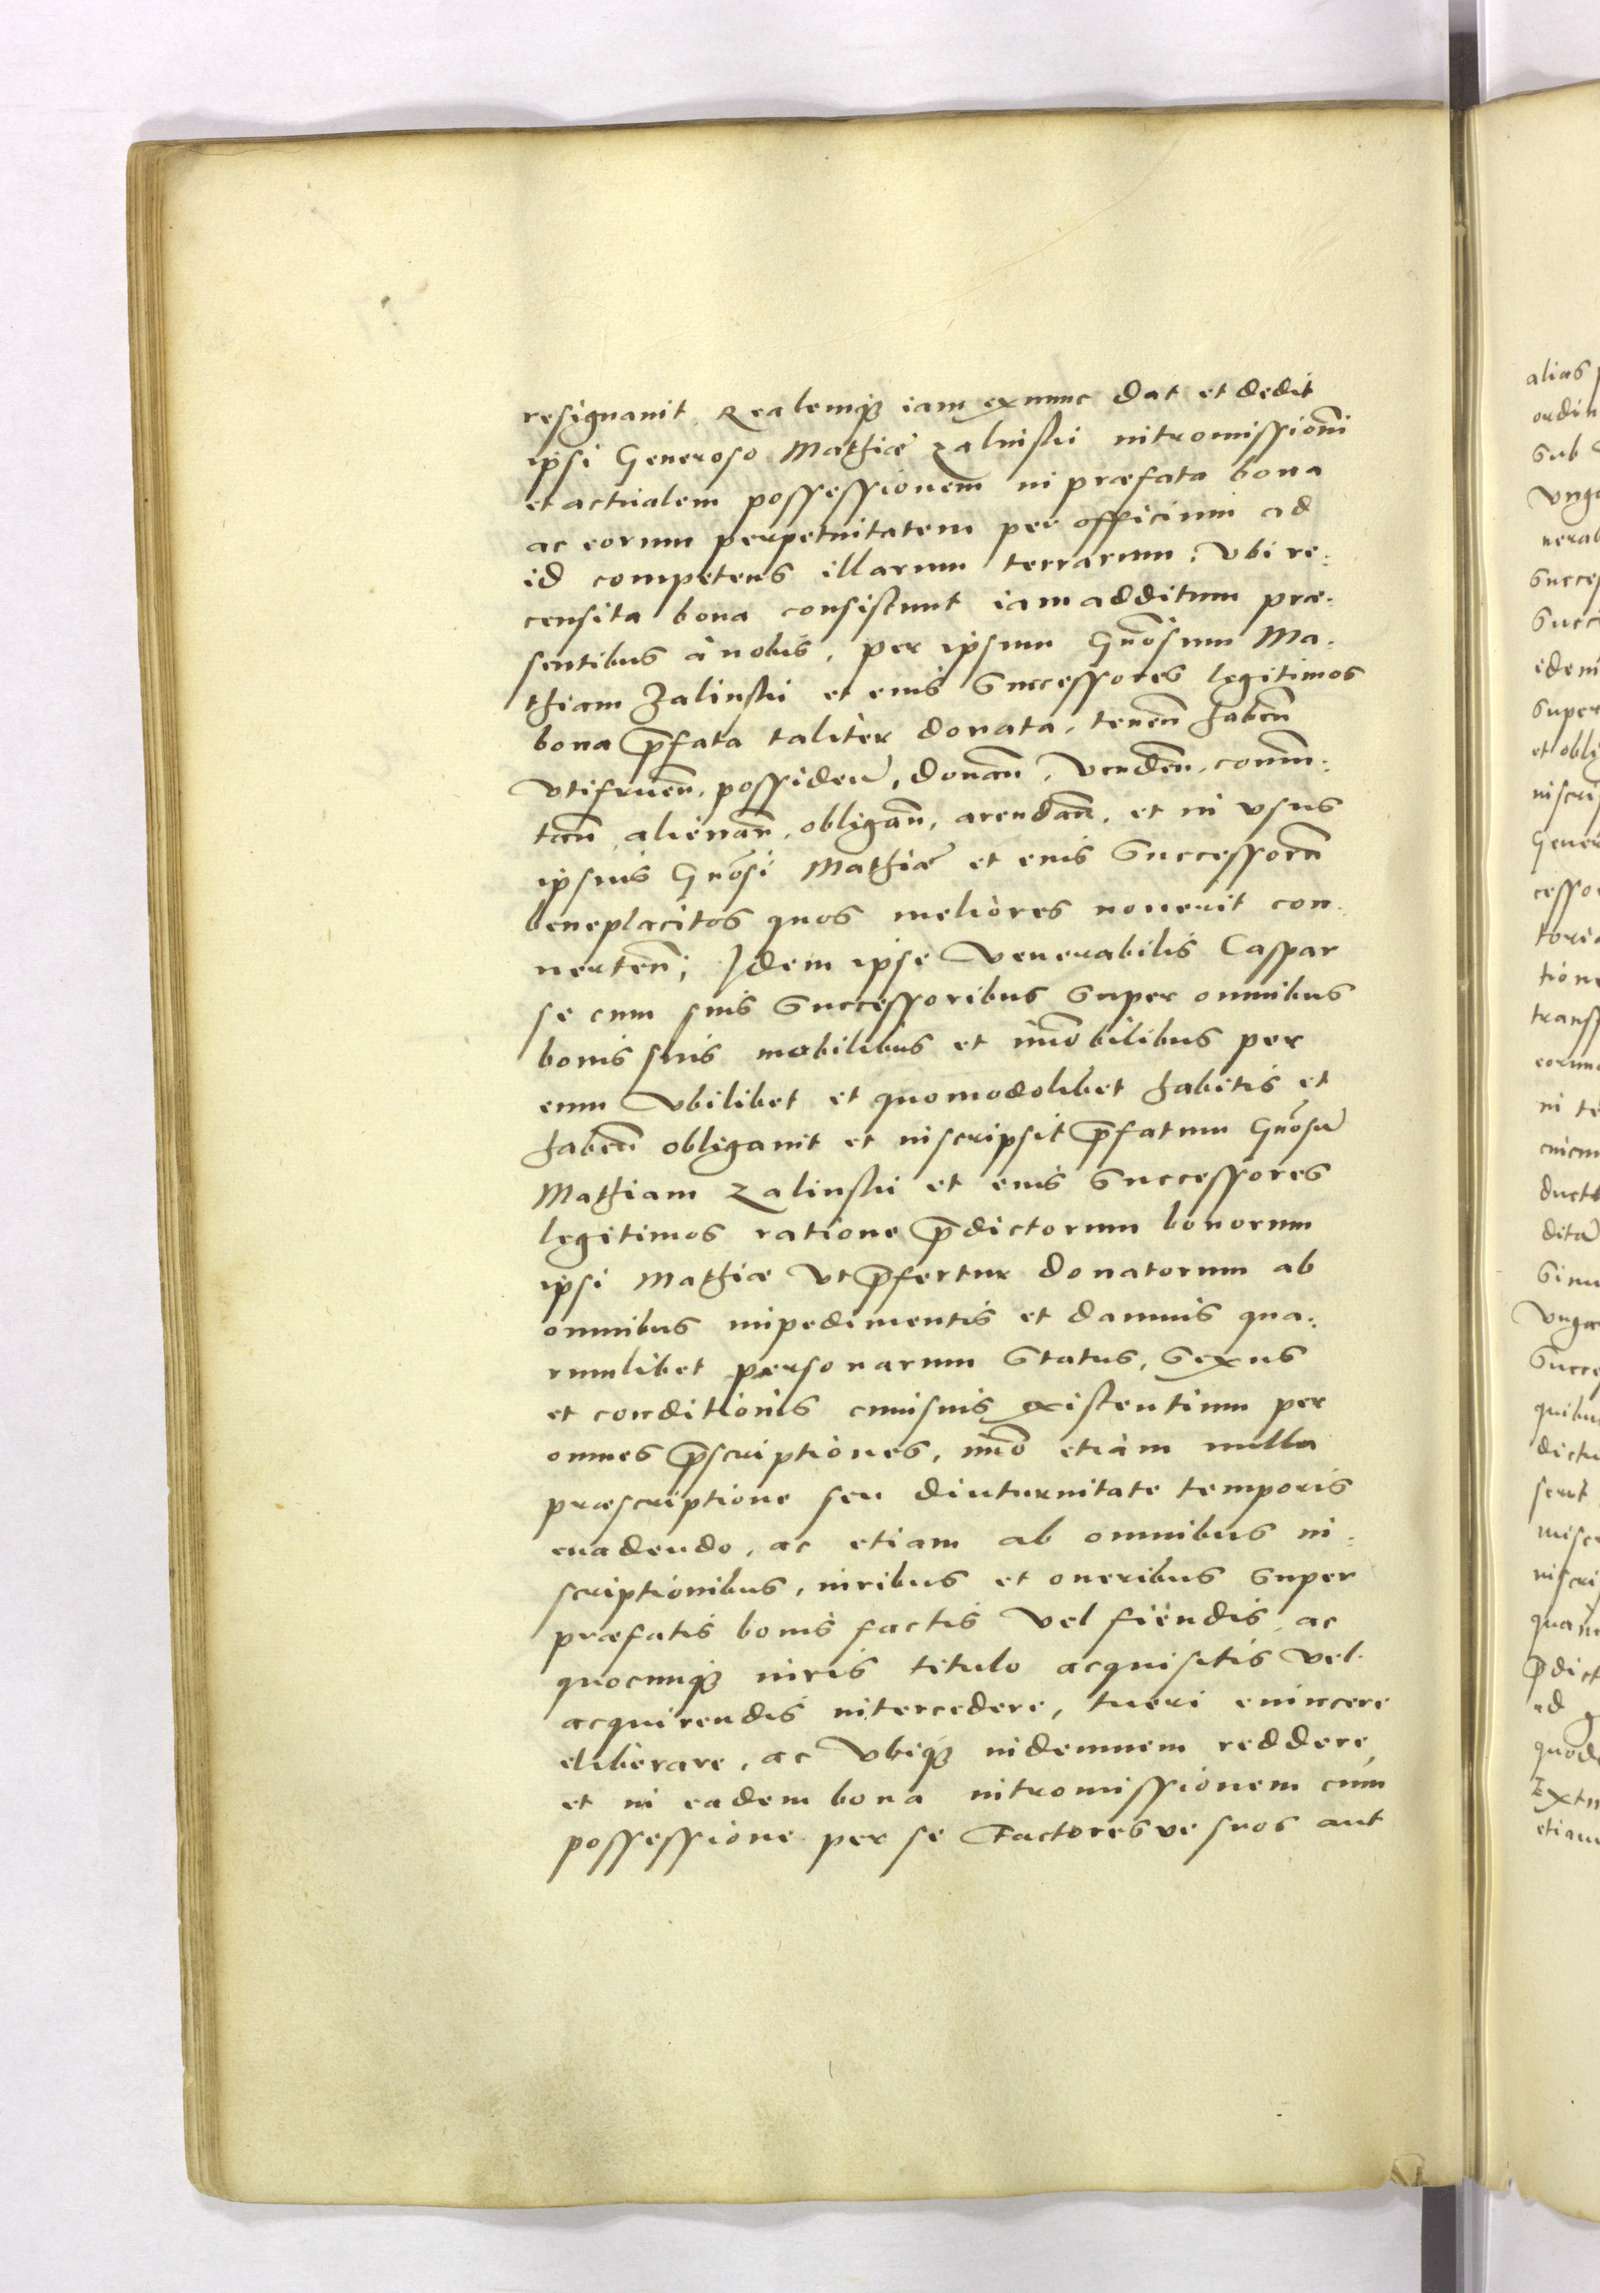 resignauit. Realemqȝ iam exnunc dat et dedit
ipsi Generoso Mathiæ Zalinski intromissionē
et actualem possessionem in præfata bona
ac eorum perpetuitatem per officium ad
id competens illarum terrarum, vbi re-
censita bona consistunt iam additum præ-
sentibus à nobis, per ipsum Gnōsum Ma-
thiam Zalinski et eius Successores legitimos
bona p̄fata taliter donata, tenēn habēn
vtifruēn, possideñ, donān, vendēn, comm̄-
tān, alienān, obligān, arendān, et in vsus
ipsius Gnōsi Mathiæ et eius Successorū
beneplacitos quos meliores nouerit con-
uertēn; Idem ipse Venerabilis Caspar
se cum suis Successoribus super omnibus
bonis suis mobilibus et im̄obilibus per
eum vbilibet et quomodolibet habitis et
habēn obligauit et inscripsit p̄fatum Gnōsū
Mathiam Zalinski et eius Successores
legitimos ratione p̄dictorum bonorum
ipsi Mathiæ vt p̄fertur donatorum ab
omnibus impedimentis et damnis qua-
rumlibet personarum Status, Sexus
et conditionis cuiusuis existentium per
omnes p̄scriptiones, im̄o etiam nulla
præscriptione seu diuturnitate temporis
euadendo, ac etiam ab omnibus in-
scriptionibus, iuribus et oneribus super
præfatis bonis factis vel fiendis, ac
quocunqȝ iuris titulo acquisitis vel
acquirendis intercedere, tueri euincere
eliberare, ac vbiqȝ indemnem reddere,
et in eadem bona intromissionem cum
possessione per se Factores ve suos aut
alias
ordin
sub
succes
succi
super
et obli
inscri
Gener
cesso
tione
transs
in te
ducte
quibu
dictu
p̄dict
ad
etiam